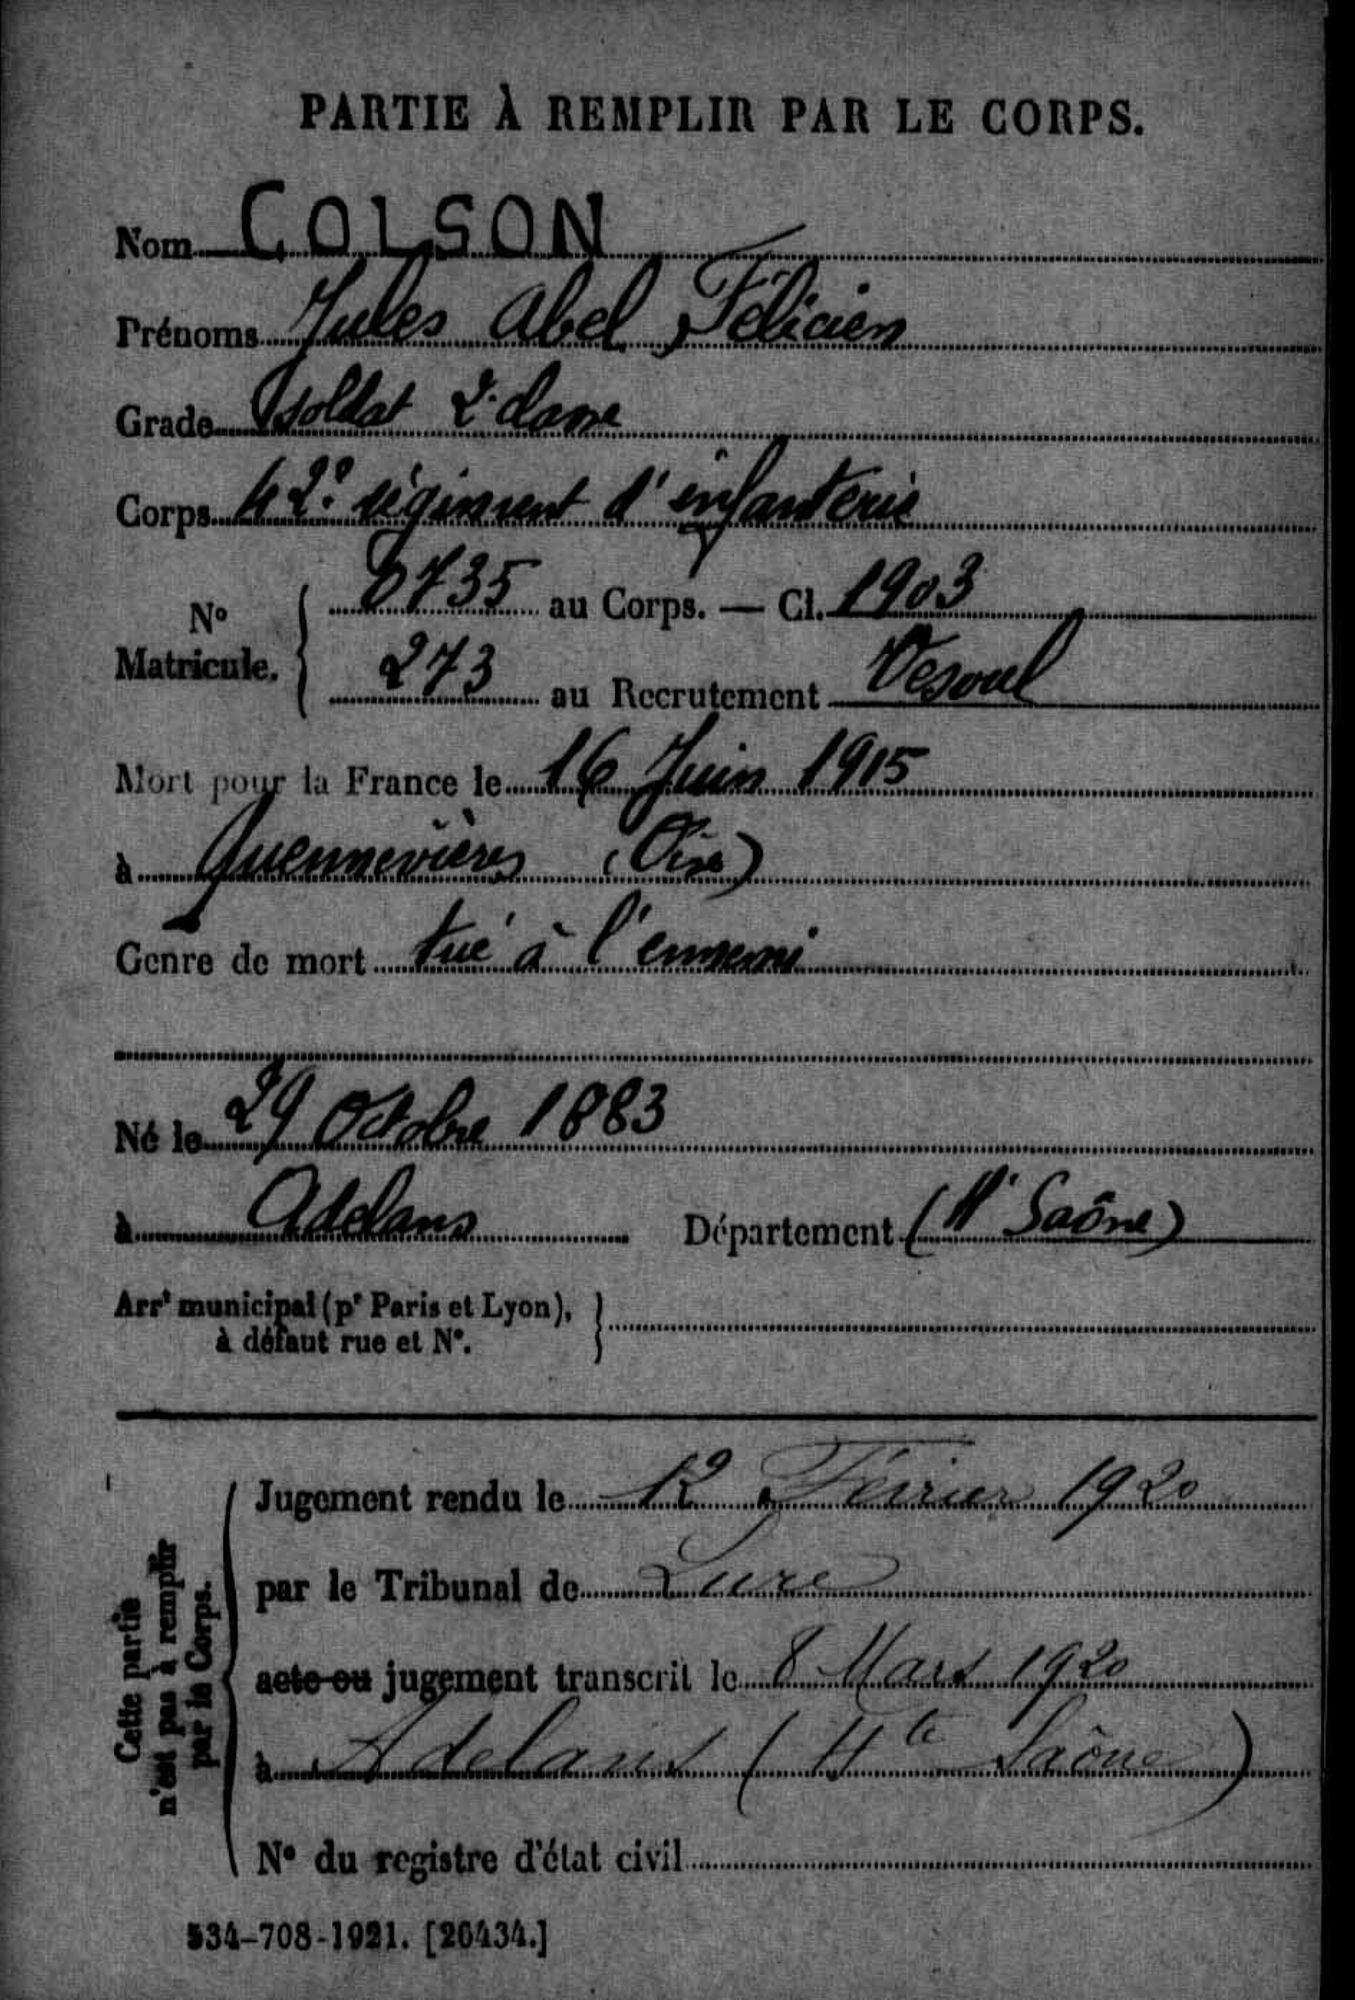 PARTIE À REMPLIR PAR LE CORPS.
Nom COLSON
Prénoms Jules Abel Félicien
Grade soldat 2e classe
Corps 42e régiment d'infanterie
No Matricule. { 8735 au Corps. — Cl. 1903
273 au Recrutement Vesoul
Mort pour la France le 16 Juin 1915
à Quennevières (Oise)
Genre de mort tué à l'ennemi
Né le 29 Octobre 1883
à Adelans Département (Hte Saône)
Arrt municipal (pr Paris et Lyon),
à défaut rue et No.
Cette partie
n'est pas à remplir
par le Corps.
Jugement rendu le 12 Février 1920
par le Tribunal de Lure
acte ou jugement transcrit le 8 Mars 1920
à Adelans (Hte Saône)
No du registre d'état civil
534-708-1921. [26434.]